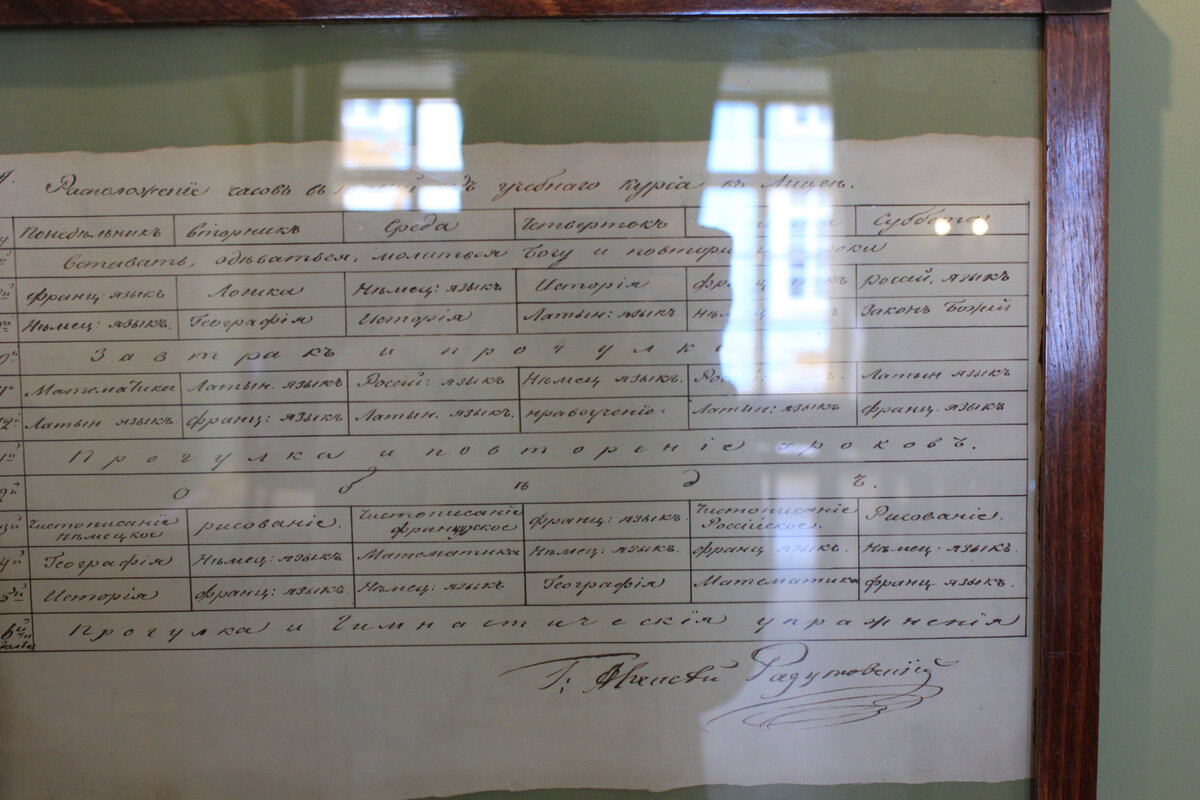 Расположеніе часовъ въ учебнаго курса въ Лицеѣ.
Понедѣльникъ Вторникъ Среда Четвертокъ Суббота
Вставать, одѣваться, молиться Богу и повторить уроки
франц: языкъ Логика Нѣмец: языкъ Исторія франц языкъ россій. языкъ
Нѣмец: языкъ. Географія Исторія Латын: языкъ Законъ Божій
Завтракъ и прогулка
Математика Латын. языкъ Россій: языкъ Нѣмец языкъ. Латын языкъ
Латын языкъ франц: языкъ Латын. языкъ. нравоученіе. Латын: языкъ франц. языкъ
Прогулка и повтореніе уроковъ.
обѣдъ.
Чистописаніе нѣмецкое рисованіе. Чистописаніе французское франц: языкъ. Чистописаніе Россійское. Рисованіе.
Географія Нѣмец: языкъ. Математика Нѣмец: языкъ. франц языкъ. Нѣмец: языкъ.
Исторія франц: языкъ. Нѣмец: языкъ Географія Математика франц. языкъ.
Прогулка и Гимнастическія упражненія
Г: Алексѣй Разумовскій